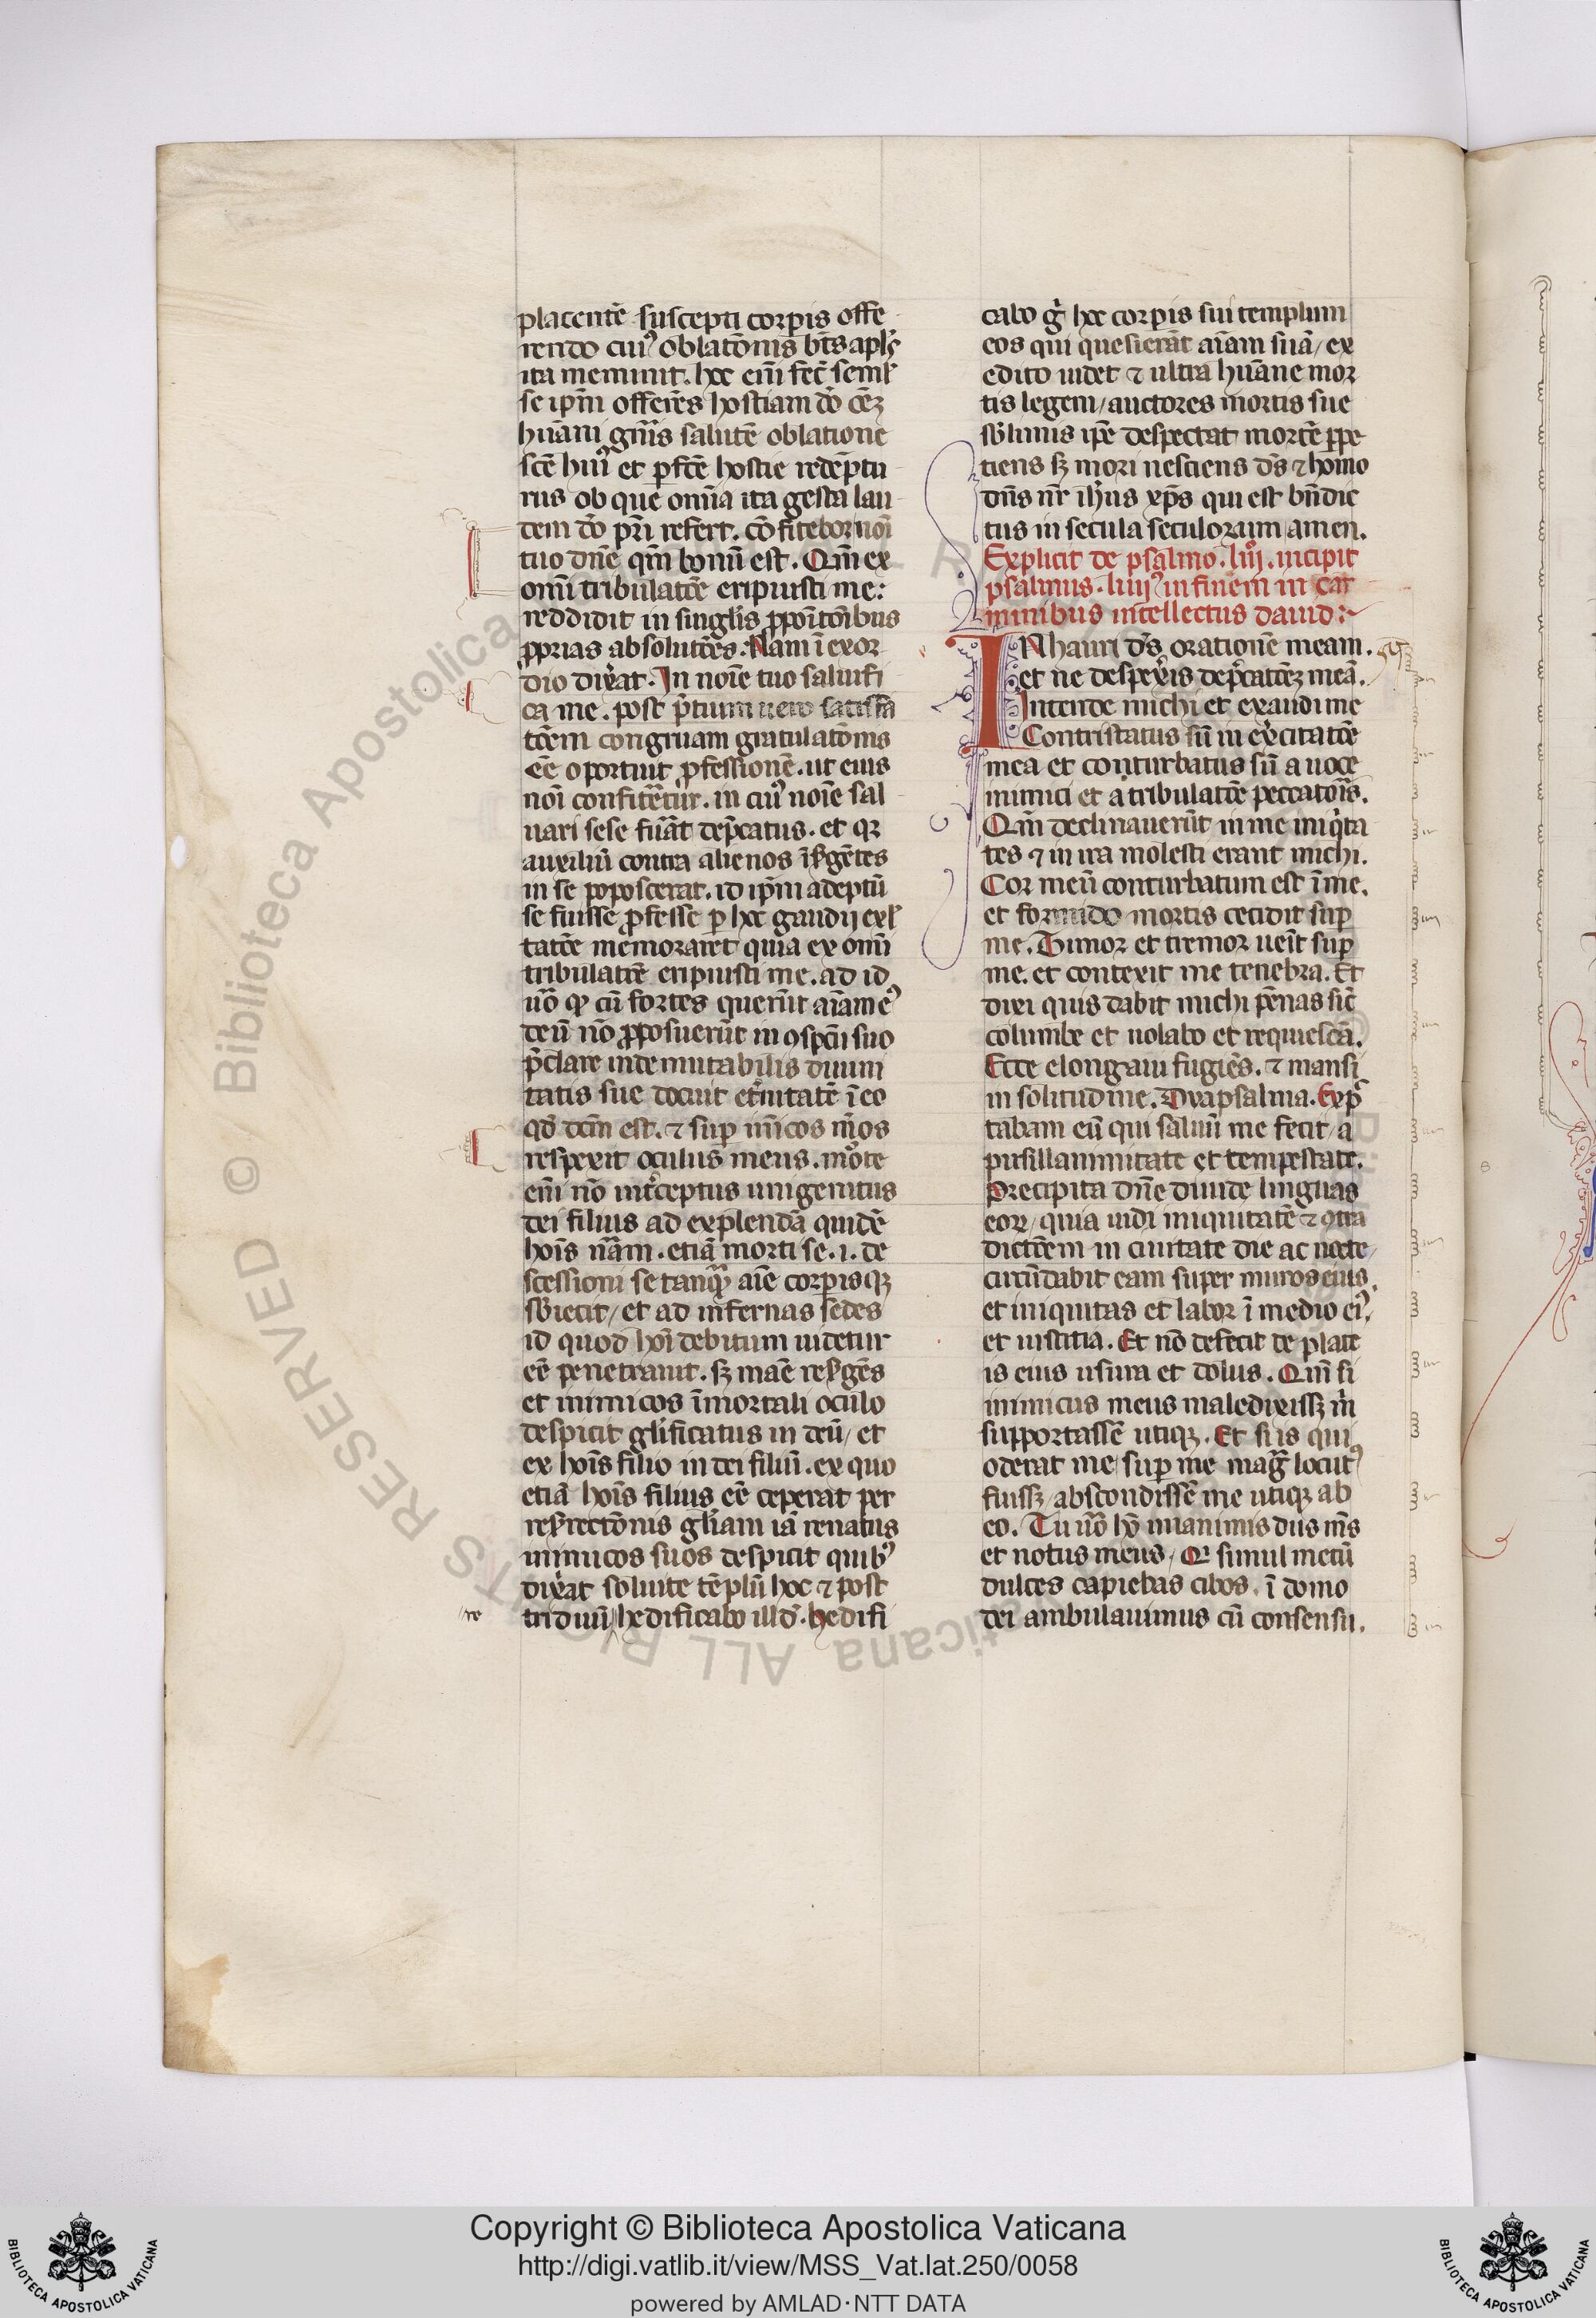 placentē suscepti corporis offe
rendo cuiꝰ oblatōnis bt̄s apl̄s
ita meminit. hoc em̄ fec̄ seml̓
se ip̄m offerēs hostiam dō oēꝫ
hūani gn̄is salutē oblatione
sc̄e huiꝰ et ꝑfc̄e hostie redēptu
rus ob que om̄ia ita gesta lau
dem dō pr̄i refert. cōfitebor noī
tuo dn̄e qm̄ bonū est. Qm̄ ex
omī tribulatōe eripuisti me:
reddidit in singl̓is ꝓpōitōibus
ꝓprias absolutōes. Nam ī exor
dio dix̓at. In noīe tuo saluifi
ca me. post p̄tium uero satisfa
tōem congruam gratulatōnis
eē oportuit ꝓfessionē. ut eius
noī confitēt̓ur. in cuiꝰ noīe sal
uari sese fu̓at dep̄catus. et qꝛ
auxiliū contra alienos īsurgētes
in se poposcerat. id ip̄m adeptū
se fuisse ꝓfesse ꝑ hoc gaudij exl̓
tatōe memoraret quia ex omī
tribulatōe eripuisti me. ad id
uō ꝙ cū fortes querūt aīam eiꝰ
deū nō ꝓposuerūt in ꝯspc̄u suo
p̄clare indemutabilis diuini
tatis sue docuit et̓nitatē ī eo
qd̓ dc̄m est. ⁊ suꝑ inīcos m̄os
respexit oculus meus. mote
em̄ nō int̓ceptus unigenitus
dei filius ad explendā quidē
hoīs nām. etiā morti se. i. de
scessioni se tanqͣ aīe corporisqꝫ
sb̓iecit / et ad infernas sedes
id quod hoī debitum uidetur
eē penetrauit. sꝫ maē resurgēs
et inimicos īmortali oculo
despicit gl̓ificatus in deū / et
ex hoīs filio in dei filiū. ex quo
etiā hoīs filius eē ceperat per
resurrectōnis gl̓iam iā renatus
inimicos suos despicit quibꝰ
dix̓at soluite tēplū hoc ⁊ post
//re
triduū // hedificabo illd̓. hedifi
cabo g̓ hoc corporis sui templum
eos qui quesierāt aīam suā / ex
edito uidet ⁊ ultra hūane mor
tis legem / auctores mortis sue
sb̓limis ip̄e despectat mortē ꝑpe
tiens sꝫ mori nesciens ds̄ ⁊ homo
dn̄s nr̄ ih̓us xp̄s qui est bn̄dic
tus in secula seculorum / amen.
Explicit de psalmo. liij. incipit
psalmus. liiijꝰ in finem in car
minibus intellectus dauid:
INhauri ds̄ orationē meam.
et ne despex̓is dep̄catōeꝫ meā.
Intende michi et exaudi me
Contristatus sū in ex̓citatōe
mea et conturbatus sū a uoce
inimici et a tribulatōe peccatoīs.
Qm̄ declinauerūt in me iniqͥta
tes ⁊ in ira molesti erant michi.
Cor meū conturbatum est ī me.
et formido mortis cecidit suꝑ
me. Timor et tremor ueīt suꝑ
me. et contexit me tenebra. Et
dixi quis dabit michi pēnas sic̄
columbe et uolabo et requiescā.
Ecce elongaui fugiēs. ⁊ mansi
in solitudine. Dyapsalma. Exp̄c
tabam eū qui saluū me fecit / a
pusillanimitate et tempestate.
Precipita dn̄e diuide linguas
eoꝝ / quia uidi iniquitatē ⁊ ꝯtra
dictōem in ciuitate die ac nocte /
circūdabit eam super muros eius.
et iniquitas et labor ī medio eiꝰ.
et iustitia. Et nō defecit de plate
is eius usura et dolus. Qm̄ si
inimicus meus maledixissꝫ m̓
supportassē utiqꝫ. Et si is qui
oderat me / suꝑ me magͣ locutꝰ
fuissꝫ / abscondissē me utiqꝫ ab
eo. Tu uō hō unanimis dux m̄s
et notus meus / Qͥ simul mecū
dulces capiebas cibos. ī domo
dei ambulauimus cū consensu.
© Biblioteca Apostolica Vaticana ALL RIGHTS RESERVED
Copyright © Biblioteca Apostolica Vaticana
http://digi.vatlib.it/view/MSS_Vat.lat.250/0058
powered by AMLAD·NTT DATA
BIBLIOTECA APOSTOLICA VATICANA
BIBLIOTECA APOSTOLICA VATICANA